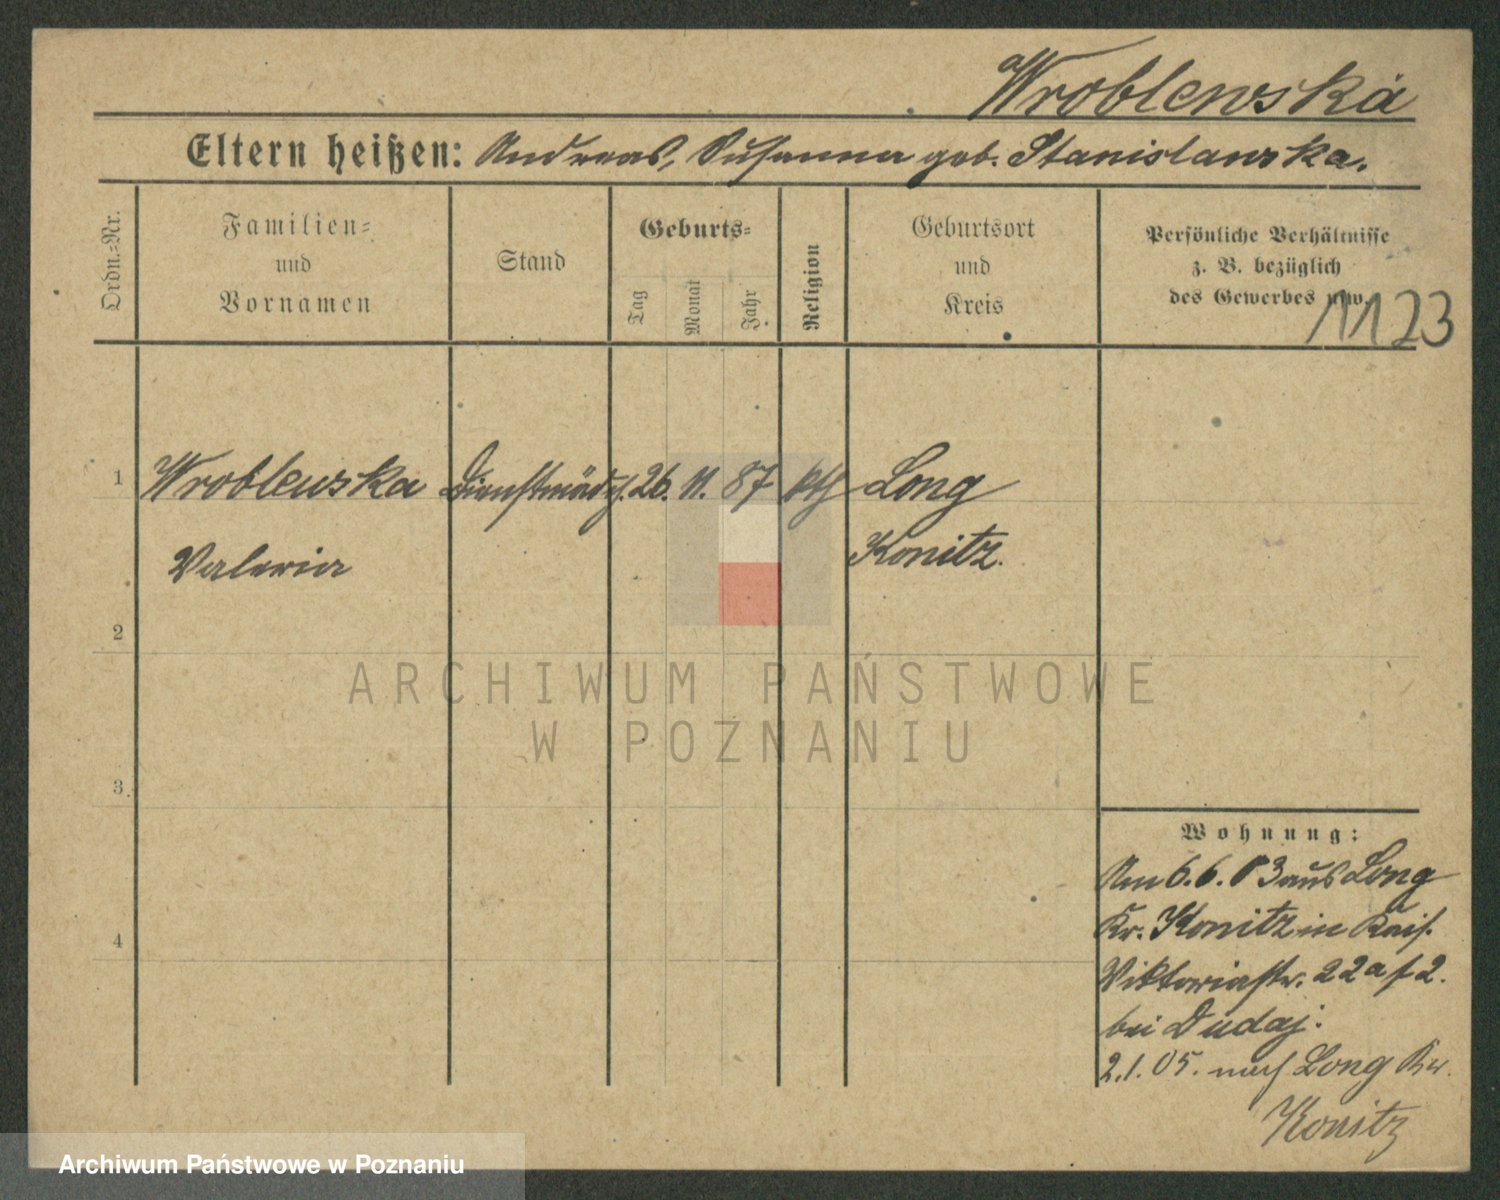 Wroblewska
Eltern heißen: Andreas, Susanna geb. Stanislawska.
Ordn.-Nr.
Familien-
und
Vornamen
Stand
Geburts-
Tag
Monat
Jahr
Religion
Geburtsort
und
Kreis
Persönliche Verhältnisse
z. B. bezüglich
des Gewerbes usw.
1123
1 Wroblewska Dienstmädch. 26. 11. 87 kth Long
Valeria Konitz.
2
3
4
ARCHIWUM PAŃSTWOWE
W POZNANIU
Wohnung:
Am 6.6.03 aus Long
Kr. Konitz in Kais.
Viktoriastr. 22a 2.
bei Dudaj.
2.1.05. nach Long Kr.
Konitz
Archiwum Państwowe w Poznaniu